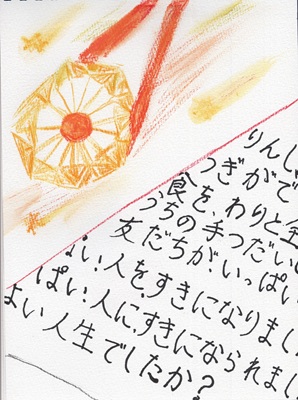 りんじ
つぎがで
食を、わりと全
うちの手つだい
友だちが、いっぱい
い、人を、すきになりまし
ぱい、人に、すきになられまし
よい人生でしたか？